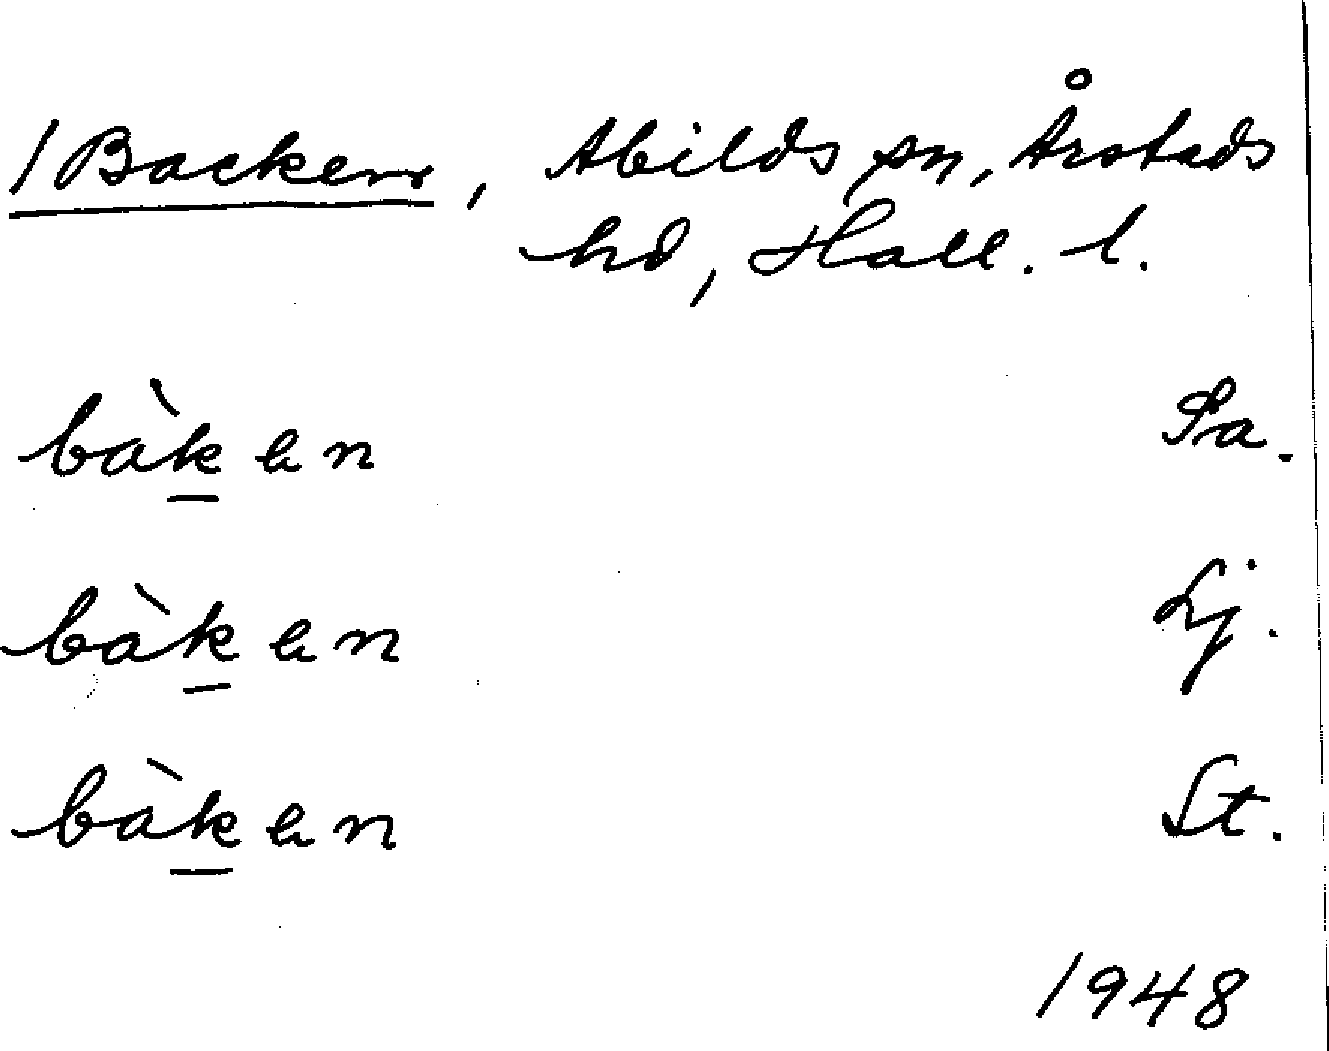 /Backen, Abilds sn, Årstads
hd, Hall. l.
bàk̲en Sa.
bàk̲en Lj.
bàk̲en St.
1948